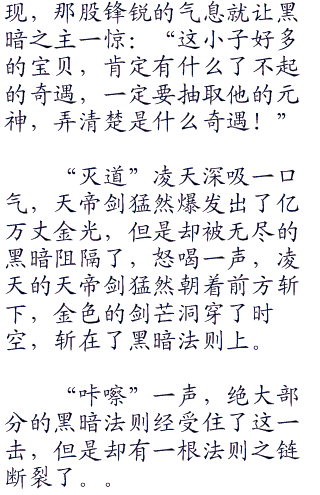 现，那股锋锐的气息就让黑
暗之主一惊：“这小子好多
的宝贝，肯定有什么了不起
的奇遇，一定要抽取他的元
神，弄清楚是什么奇遇！”
“灭道”凌天深吸一口
气，天帝剑猛然爆发出了亿
万丈金光，但是却被无尽的
黑暗阻隔了，怒喝一声，凌
天的天帝剑猛然朝着前方斩
下，金色的剑芒洞穿了时
空，斩在了黑暗法则上。
“咔嚓”一声，绝大部
分的黑暗法则经受住了这一
击，但是却有一根法则之链
断裂了。。